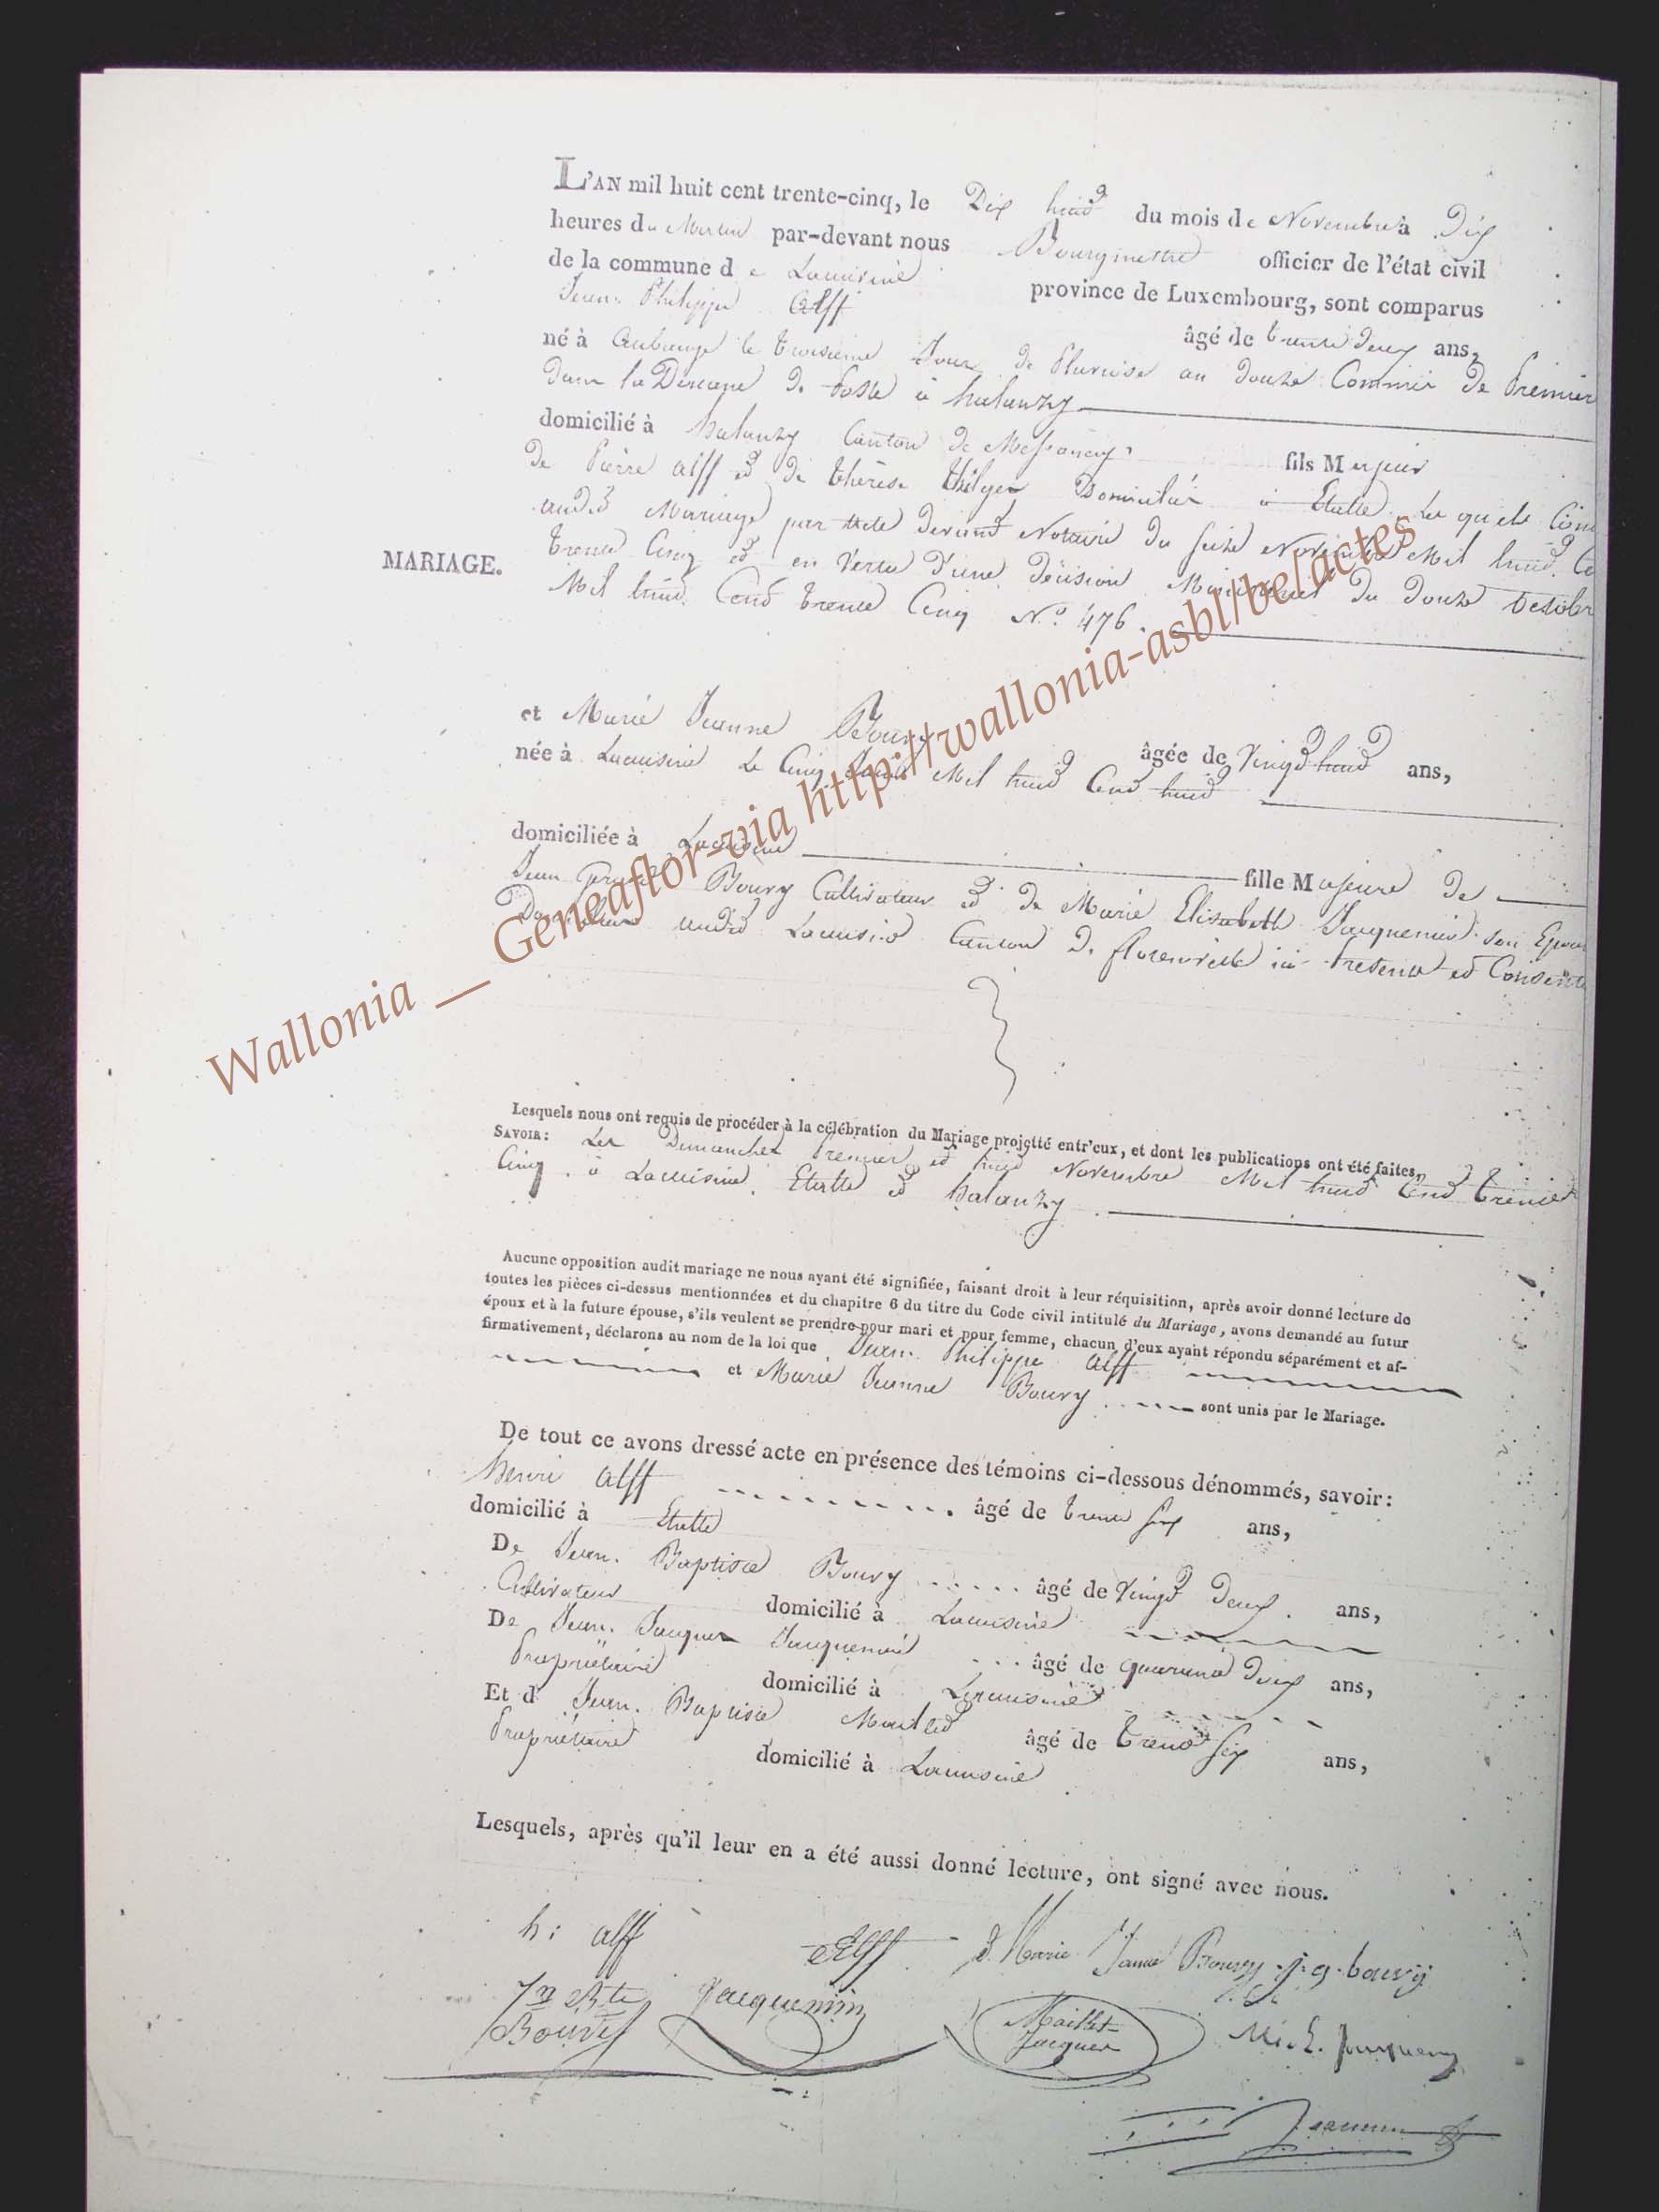 L'AN mil huit cent trente-cinq, le Dix huit du mois de Novembre à Dix
heures du Matin par-devant nous Bourgmestre officier de l'état civil
de la commune de Lacuisine province de Luxembourg, sont comparus
Jean Philippe Alff âgé de trente deux ans,
né à Aubange le troisieme Jour de Pluviose an douze Commis de Premier
dans la Douane de Poste à halanzy
domicilié à halanzy Canton de Messancy fils Majeur
de Pierre Alff et de thérèse thilgen Domiciliés à Etalle Les quels
audit Mariage par acte devant Notaire du seize Novembre Mil huit
trente Cinq et en vertu d'une décision Ministeriel du douze Octobre
MARIAGE.
Mil huit Cent trente Cinq N.º 476.
et Marie Jeanne Bouvy âgée de Vingt huit ans,
née à Lacuisine Le Cinq Mil huit Cent huit
domiciliée à Lacuisine fille Majeure de
Jean Bouvy Cultivateur et de Marie Elisabeth Jacquemin son
audit Lacuisine Canton de florenville ici Présents et
Lesquels nous ont requis de procéder à la célébration du Mariage projetté entr'eux, et dont les publications ont été faites,
SAVOIR: Les Dimanches Premier et huit Novembre Mil huit Cent trente
Cinq à Lacuisine, Etalle et halanzy
Aucune opposition audit mariage ne nous ayant été signifiée, faisant droit à leur réquisition, après avoir donné lecture de
toutes les pièces ci-dessus mentionnées et du chapitre 6 du titre du Code civil intitulé du Mariage, avons demandé au futur
époux et à la future épouse, s'ils veulent se prendre pour mari et pour femme, chacun d'eux ayant répondu séparément et af-
firmativement, déclarons au nom de la loi que Jean Philippe Alff
et Marie Jeanne Bouvy sont unis par le Mariage.
De tout ce avons dressé acte en présence des témoins ci-dessous dénommés, savoir:
henri Alff âgé de trente six ans,
domicilié à Etalle
De Jean Baptiste Bouvy âgé de Vingt deux ans,
Cultivateur domicilié à Lacuisine
De Jean Jacques Jacquemin âgé de quarante deux ans,
Propriétaire domicilié à Lacuisine
Et d Jean Baptiste Maillet âgé de trente six ans,
Propriétaire domicilié à Lacuisine
Lesquels, après qu'il leur en a été aussi donné lecture, ont signé avec nous.
h: alff Alff Marie Janne Bouvy j. g. bouvy
Jn Bte Bouvy Jacquemin Maillet Jacques Mich.
Wallonia __ Geneaflor-via http://wallonia-asbl/be/actes